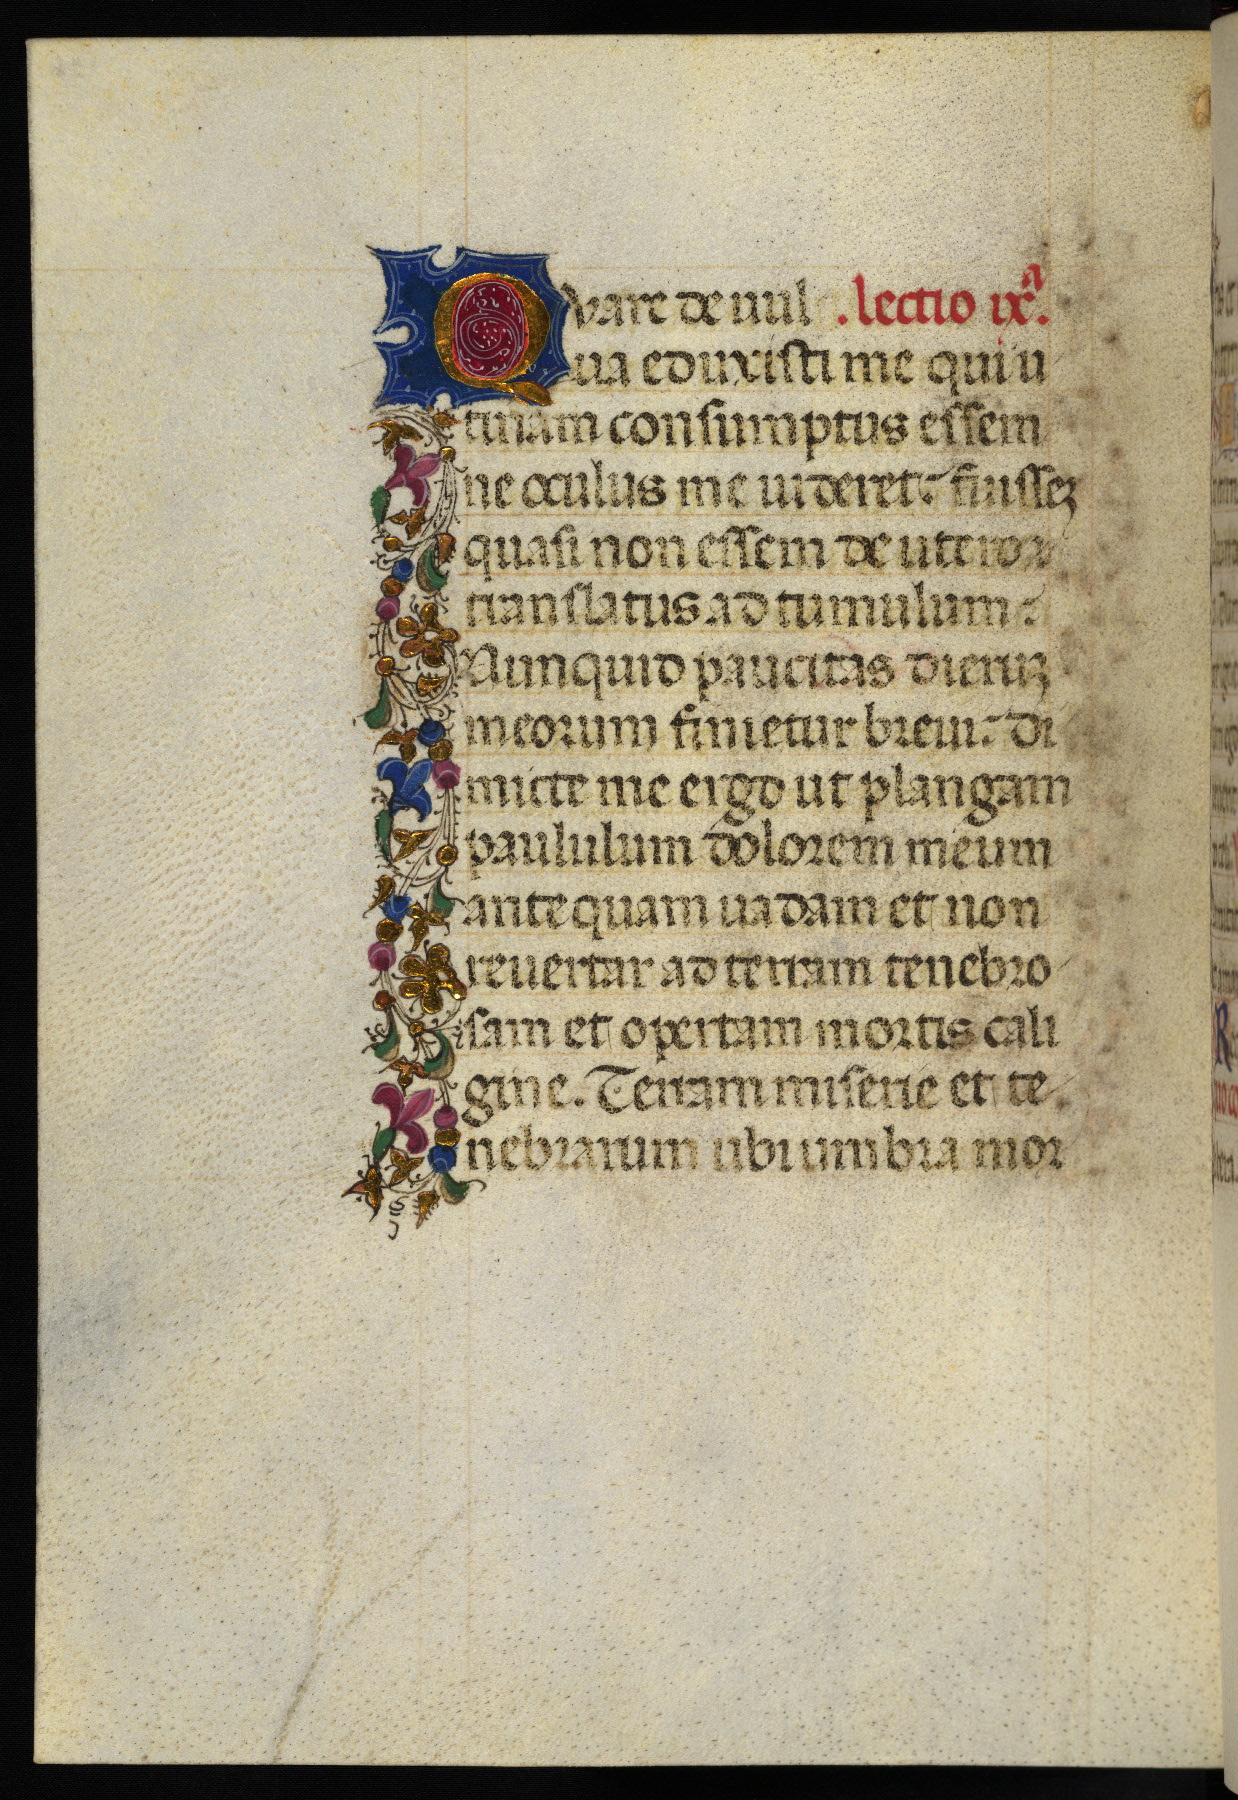 Quare de uul .lectio ixª.
ua eduxisti me qui u
tinam consumptus essem
ne oculus me uideret: fuissez
quasi non essem de utero
translatus ad tumulum:
Nunquid paucitas dieruz
meorum finietur breui: di
micte me ergo ut plangam
paululum dolorem meum
antequam uadam et non
reuertar ad terram tenebro
sam et opertam mortis cali
gine. Terram miserie et te
nebrarum ubi umbra mor